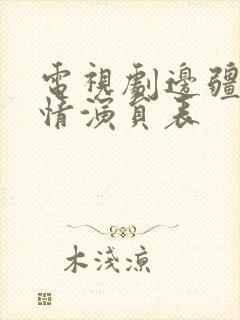 電視劇邊疆
情演員表
木淺涼